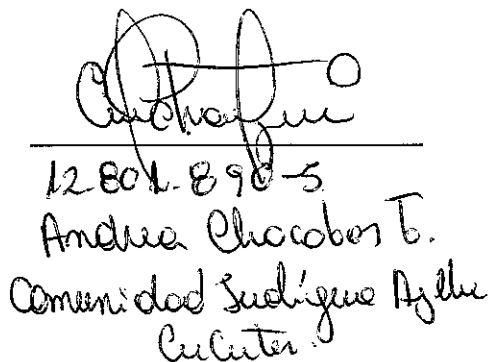 12.801.890-5
Andrea Chocobar T.
Comunidad Indígena Ayllu
Cucuter.